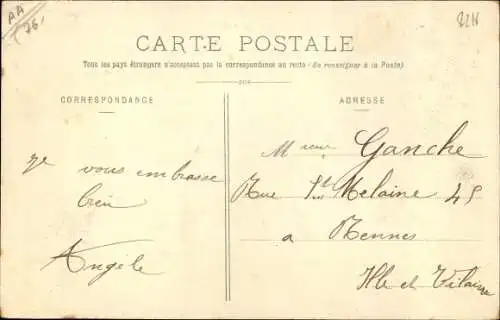 AA
76.
2218
CARTE POSTALE
Tous les pays étrangers n'acceptent pas la correspondance au recto (Se renseigner à la Poste)
CORRESPONDANCE
ADRESSE
je vous embrasse
bien
Angele
Msieur Ganche
Rue St Melaine 45
a Rennes
Ille et Vilaine